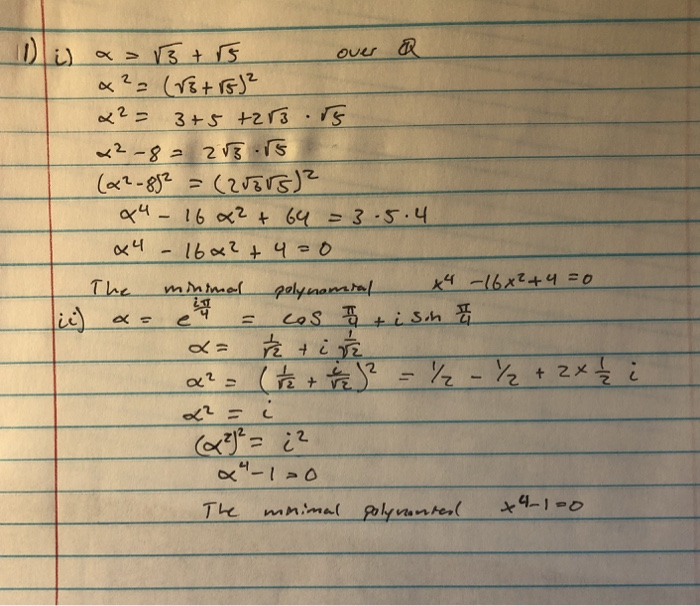 1) i) α = √3 + √5 over Q
α² = (√3+√5)²
α² = 3+5 +2√3 · √5
α² - 8 = 2√3 · √5
(α²-8)² = (2√3√5)²
α⁴ - 16 α² + 64 = 3·5·4
α⁴ - 16α² + 4 = 0
The minimal polynomial x⁴ -16x²+4 = 0
ii) α = e^(iπ/4) = cos π/4 + i sin π/4
α = 1/√2 + i 1/√2
α² = (1/√2 + i/√2)² = 1/2 - 1/2 + 2 × 1/2 i
α² = i
(α²)² = i²
α⁴ - 1 = 0
The minimal polynomial x⁴-1=0